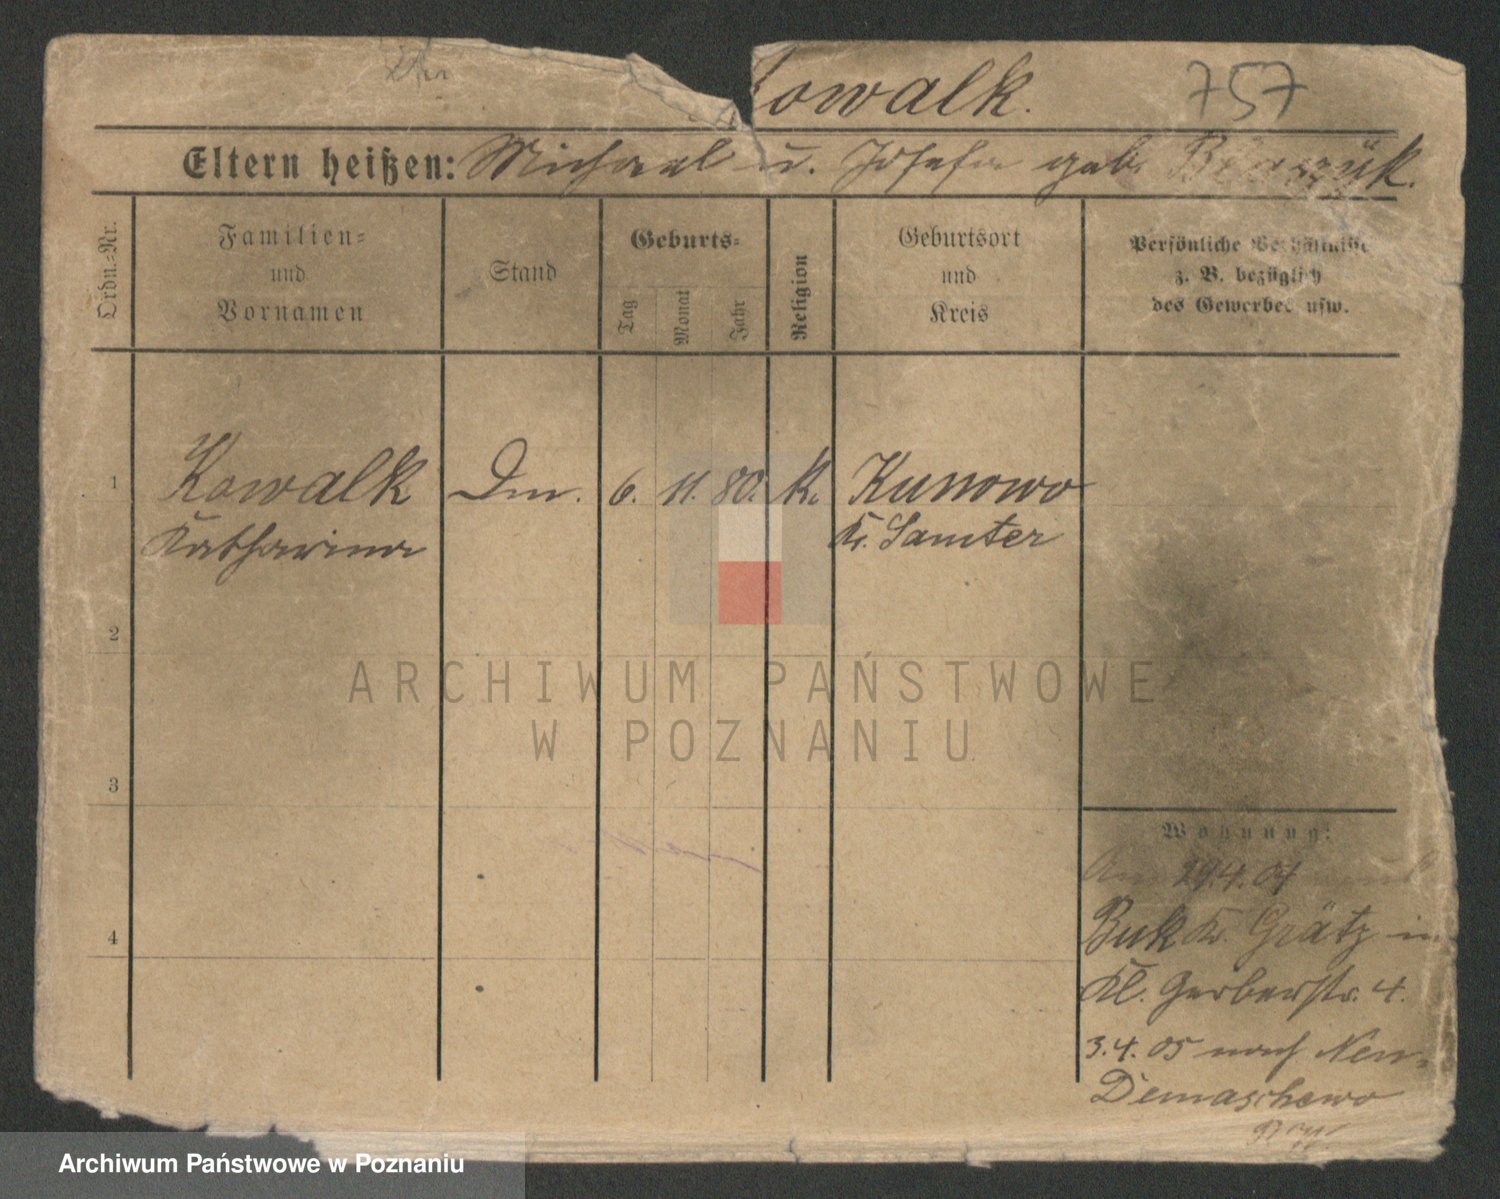 Kowalk.
757
Eltern heißen: Michael u. Josefa geb.
Ordn.-Nr.
Familien-
und
Vornamen
Stand
Geburts-
Tag
Monat
Jahr
Religion
Geburtsort
und
Kreis
Persönliche Verhältnisse
z. B. bezüglich
des Gewerbes usw.
1
Kowalk Dm. 6. 11. 80. k. Kunowo
Katharina Kr. Samter
2
ARCHIWUM PAŃSTWOWE
W POZNANIU
3
Wohnung:
29.4.04
4
Buk Kr. Grätz in
Kl. Gerberstr. 4.
3.4.05 nach Neu-
Demaschewo
Archiwum Państwowe w Poznaniu